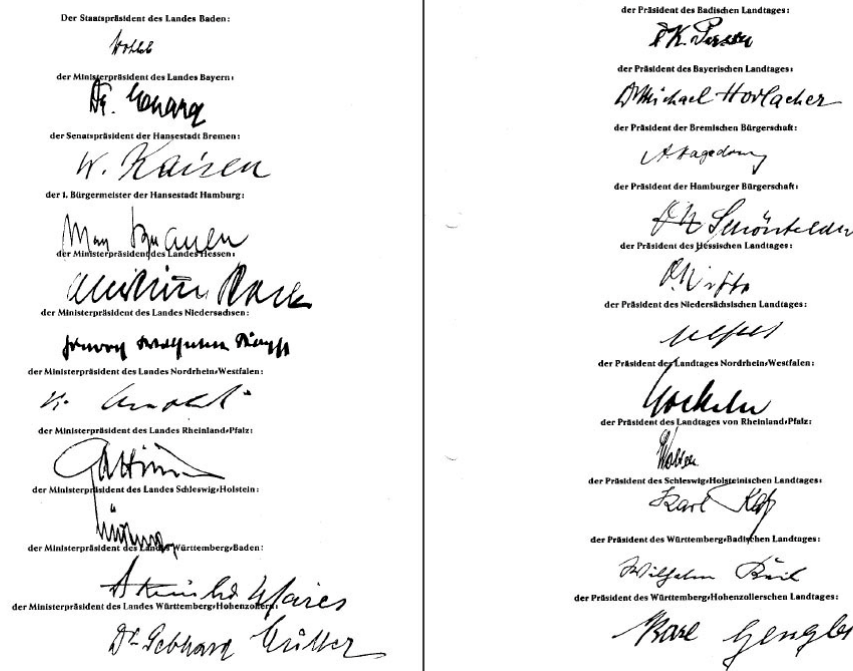 Der Staatspräsident des Landes Baden:
Wohleb
der Ministerpräsident des Landes Bayern:
Dr. Ehard
der Senatspräsident der Hansestadt Bremen:
W. Kaisen
der 1. Bürgermeister der Hansestadt Hamburg:
Max Brauer
der Ministerpräsident des Landes Hessen:
Christian Stock
der Ministerpräsident des Landes Niedersachsen:
Hinrich Wilhelm Kopf
der Ministerpräsident des Landes Nordrhein-Westfalen:
K. Arnold
der Ministerpräsident des Landes Rheinland-Pfalz:
Altmeier
der Ministerpräsident des Landes Schleswig-Holstein:
Lüdemann
der Ministerpräsident des Landes Württemberg-Baden:
Reinhold Maier
der Ministerpräsident des Landes Württemberg-Hohenzollern:
Dr Gebhard Müller
der Präsident des Badischen Landtages:
der Präsident des Bayerischen Landtages:
Dr Michael Horlacher
der Präsident der Bremischen Bürgerschaft:
A. Hagedorn
der Präsident der Hamburger Bürgerschaft:
Schönfelder
der Präsident des Hessischen Landtages:
O. Witte
der Präsident des Niedersächsischen Landtages:
Olfers
der Präsident des Landtages Nordrhein-Westfalen:
Gockeln
der Präsident des Landtages von Rheinland-Pfalz:
Wolters
der Präsident des Schleswig-Holsteinischen Landtages:
Karl
der Präsident des Württemberg-Badischen Landtages:
Wilhelm Keil
der Präsident des Württemberg-Hohenzollerschen Landtages:
Karl Gengler